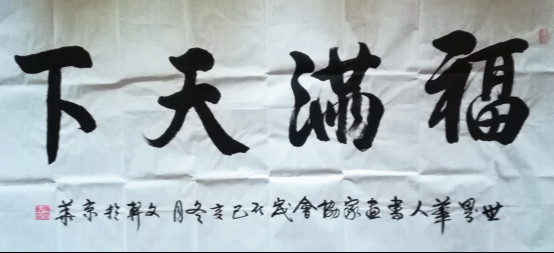 福满天下
世界華人書画家協會歲在己亥冬月文軒於京華